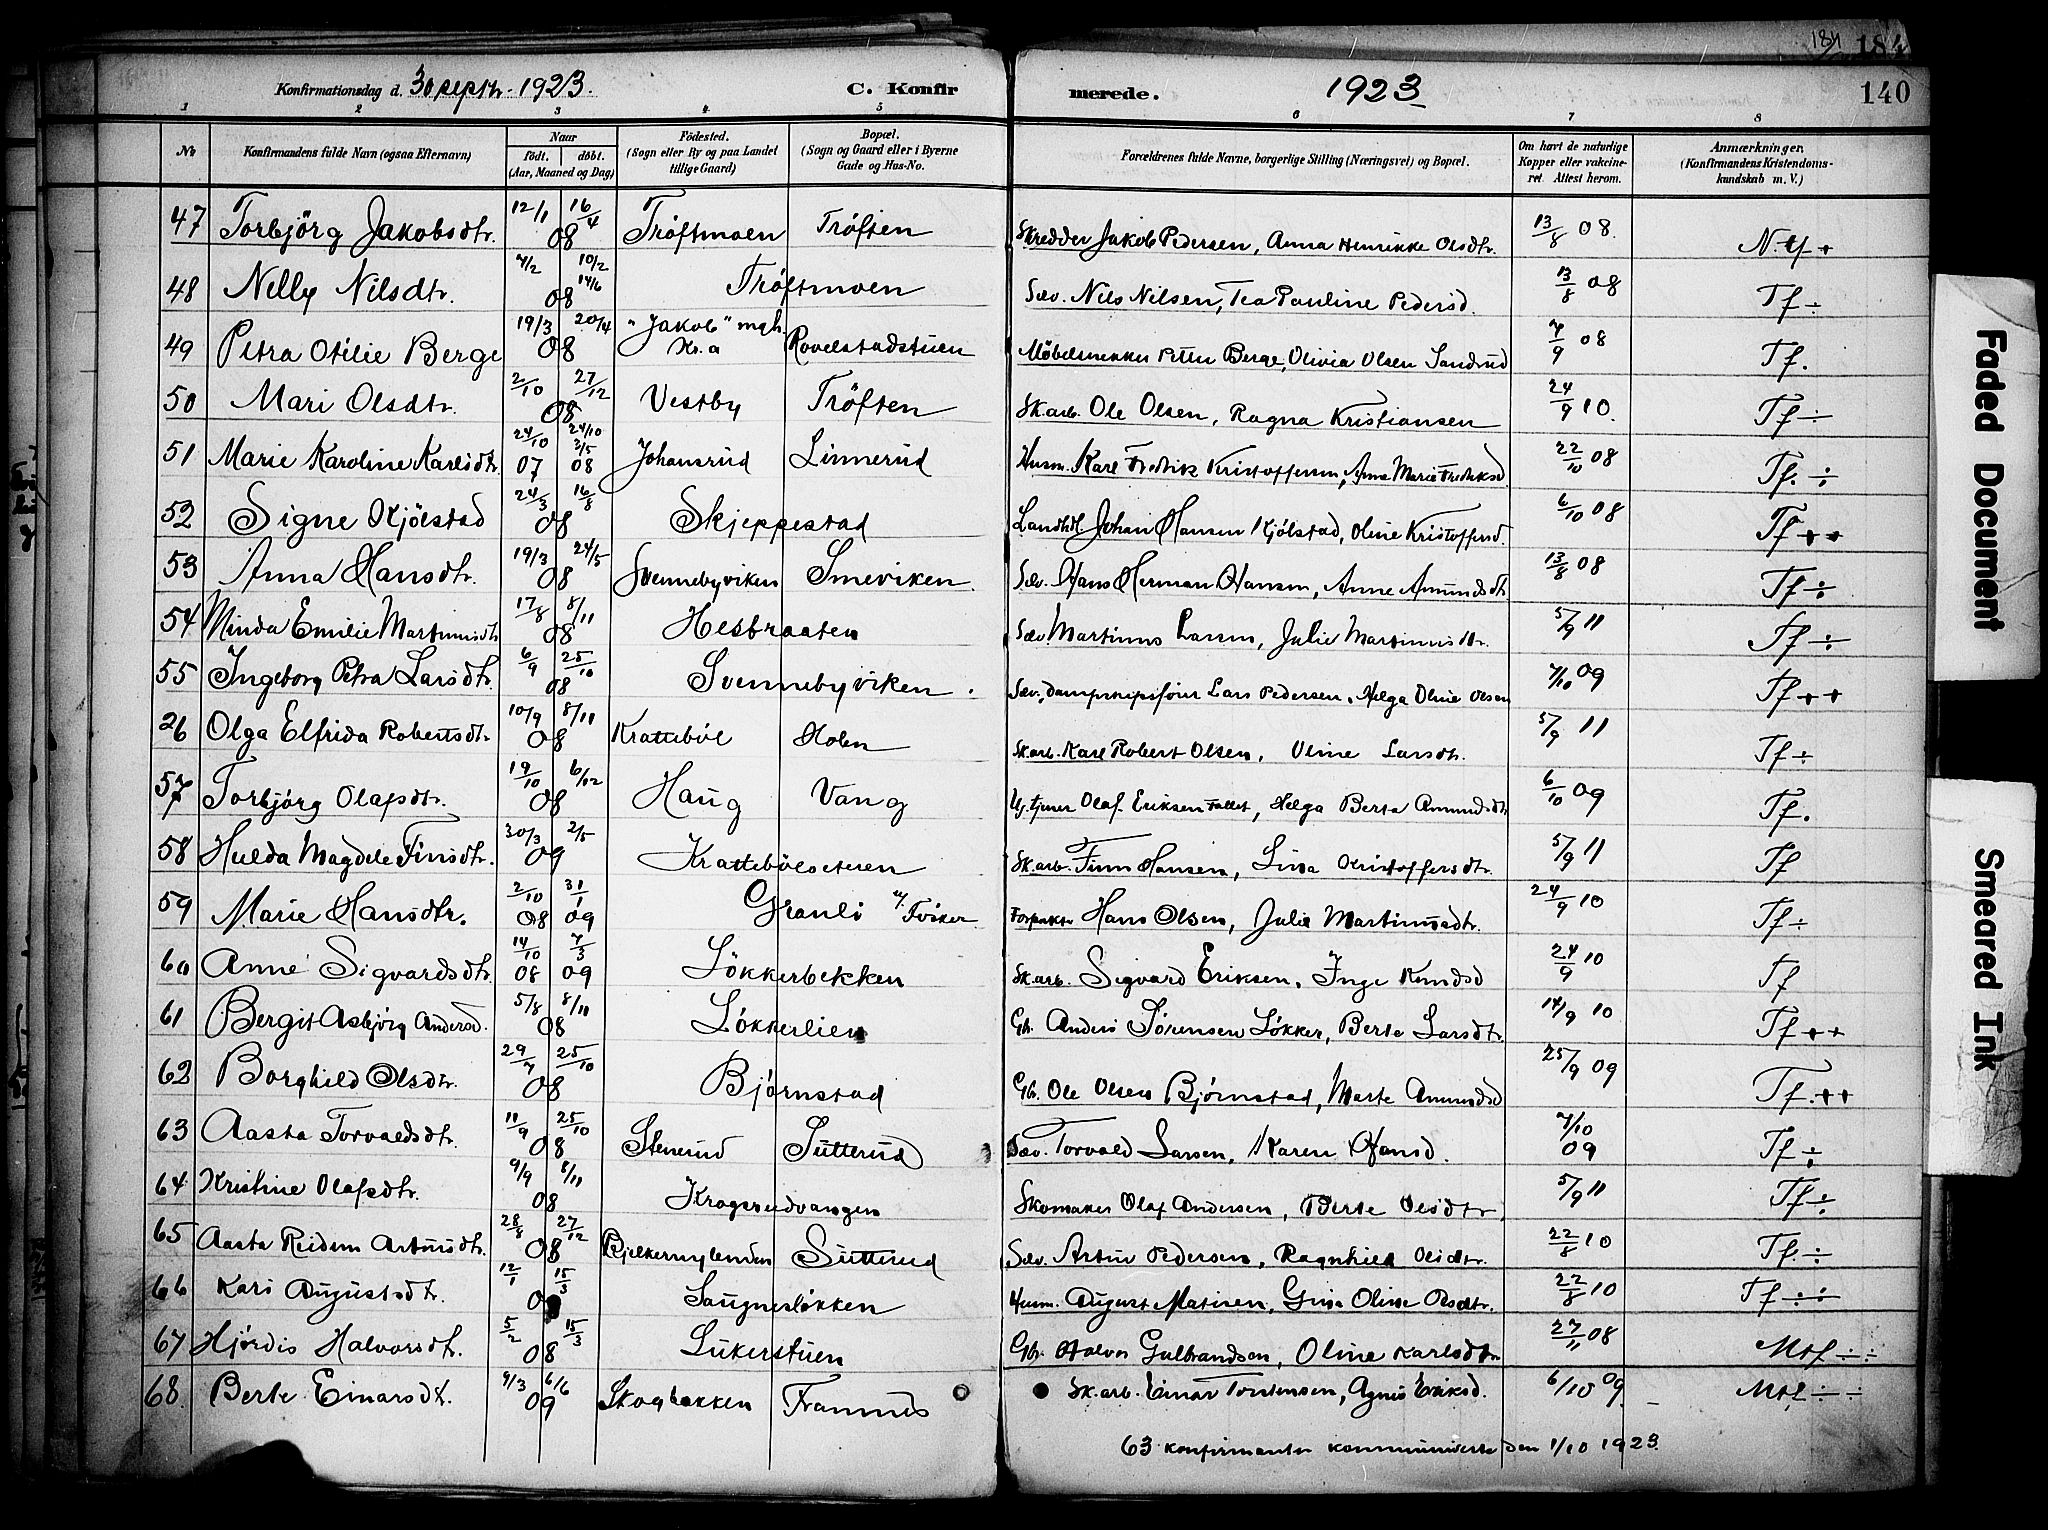 184 184
Konfirmationsdag d. 30 septbr. 1923. C. Konfirmerede. 1923 140
1 2 3 4 5 6 7 8
No Konfirmandens fulde Navn (ogsaa Efternavn) Naar født. døbt. (Aar, Maaned og Dag) Fødested. (Sogn eller By og paa Landet tillige Gaard) Bopæl. (Sogn og Gaard eller i Byerne Gade og Hus-No. Forældrenes fulde Navne, borgerlige Stilling (Næringsvei) og Bopæl. Om havt de naturlige Kopper eller vakcineret Attest herom. Anmærkninger. (Konfirmandens Kristendomskundskab m. V.)
47 Torbjörg Jakobsdtr. 12/1 16/4 08 Tröftmoen Tröften Skredder Jakob Pedersen, Anna Henrikke Olsdtr. 13/8 08.
48 Nelly Nilsdtr. 7/2 10/2 14/6 08 Tröftmoen Sæv. Nils Nilsen, Tea Pauline Pedersd. 13/8 08 Tf ÷
49 Petra Otilie Berge 19/3 20/4 08 "Jakob" mgh. Kr.a Rovelstadstuen Möbelsnekker Petter Berge, Olivia Olsen Sandrud 7/9 08 Tf.
50 Mari Olsdtr. 2/10 27/12 08 Vestby Tröften Sk.arb. Ole Olsen, Ragna Kristiansen 24/9 10. Tf ÷
51 Marie Karoline Karlsdtr. 24/10 07 24/10 3/5 08 Johansrud Linnerud Husm. Karl Fredrik Kristoffersen, Anna Marie Fredriksd. 22/10 08 Tf. ÷
52 Signe Kjölstad 24/3 16/8 08 Skjeppestad Landh. Johan Hansen Kjölstad, Oline Kristoffersd. 6/10 08 Tf ++
53 Anna Hansdtr. 19/3 24/5 08 Svennebyviken Smeviken. Sæv. Hans Herman Hansen, Anne Amundsdtr. 13/8 08 Tf ÷
54 Minda Emilie Martinusdtr 17/8 8/11 08 Hesbraaten Sæv Martinus Larsen, Julie Martinusdtr. 5/9 11 Tf ÷
55 Ingeborg Petra Larsdtr. 6/9 25/10 08 Svennebyviken. Sæv., dampskipsförer Lars Pedersen, Helga Oline Olsen 7/10 09 Tf ++
26 Olga Elfrida Robertsdtr. 10/9 8/11 08 Kratteböl Holen Sk.arb. Karl Robert Olsen, Oline Larsdtr. 5/9 11 Tf ÷
57 Torbjörg Olafsdtr. 19/10 6/12 08 Haug Vang Olaf Eriksen Fallet, Helga Berta Amundsdtr 6/10 09 Tf.
58 Hulda Magdele Finsdtr. 30/3 2/5 09 Krattebölseteren Sk.arb. Finn Hansen, Lina Kristoffersdtr. 5/9 11 Tf
59 Marie Hansdtr. 2/10 08 31/1 09 Granli u/ Tviker Forpakter Hans Olsen, Julie Martinusdtr. 24/9 10 Tf ÷
60 Anne Sigvardsdtr. 14/10 08 7/3 09 Lökkerbekken Sk.arb. Sigvard Eriksen, Inga Knudsd 24/9 10 Tf
61 Bergit Asbjörg Andersd. 5/8 8/11 08 Lökkerlien Gbr. Anders Sörensen Lökker, Berte Larsdtr. 14/9 10 Tf ++
62 Borghild Olsdtr. 29/7 25/10 08 Björnstad Gbr. Ole Olsen Björnstad, Marte Amundsd 25/9 09 Tf.++
63 Aasta Torvaldsdtr. 11/9 25/10 08 Stenerud Sutterud Sæv. Torvald Larsen, Karen Hansd. 7/10 09 Tf ÷
64 Kristine Olafsdtr. 9/9 8/11 08 Kragsrudvangen Skomaker Olaf Andersen, Berte Olsdtr, 5/9 11 Tf ÷
65 Aasta Reidun Artursdtr. 28/8 27/12 08 Bjelkernylenden Sutterud Sæv. Artur Pedersen, Ragnhild Olsdtr. 22/8 10 Tf. ÷
66 Kari Augustsdtr. 12/1 15/3 Saugnerlökken Husm. August Matisen, Gina Oline Olsdtr. 22/8 10 Tf ÷ ÷
67 Hjördis Halvorsdtr. 5/2 15/3 08 Lukerstuen Gbr. Halvor Gulbrandsen, Oline Karlsdtr 27/11 08 Mtf ÷ ÷
68. Berte Einarsdt. 9/3 6/6 09 Skogbakken Framnes Sk.arb. Einar Torstensen, Agnes Eriksd. 6/10 09 Mtf ÷ ÷
63 konfirmanter kommuniserte den 1/10 1923.
Faded Document
Smeared Ink